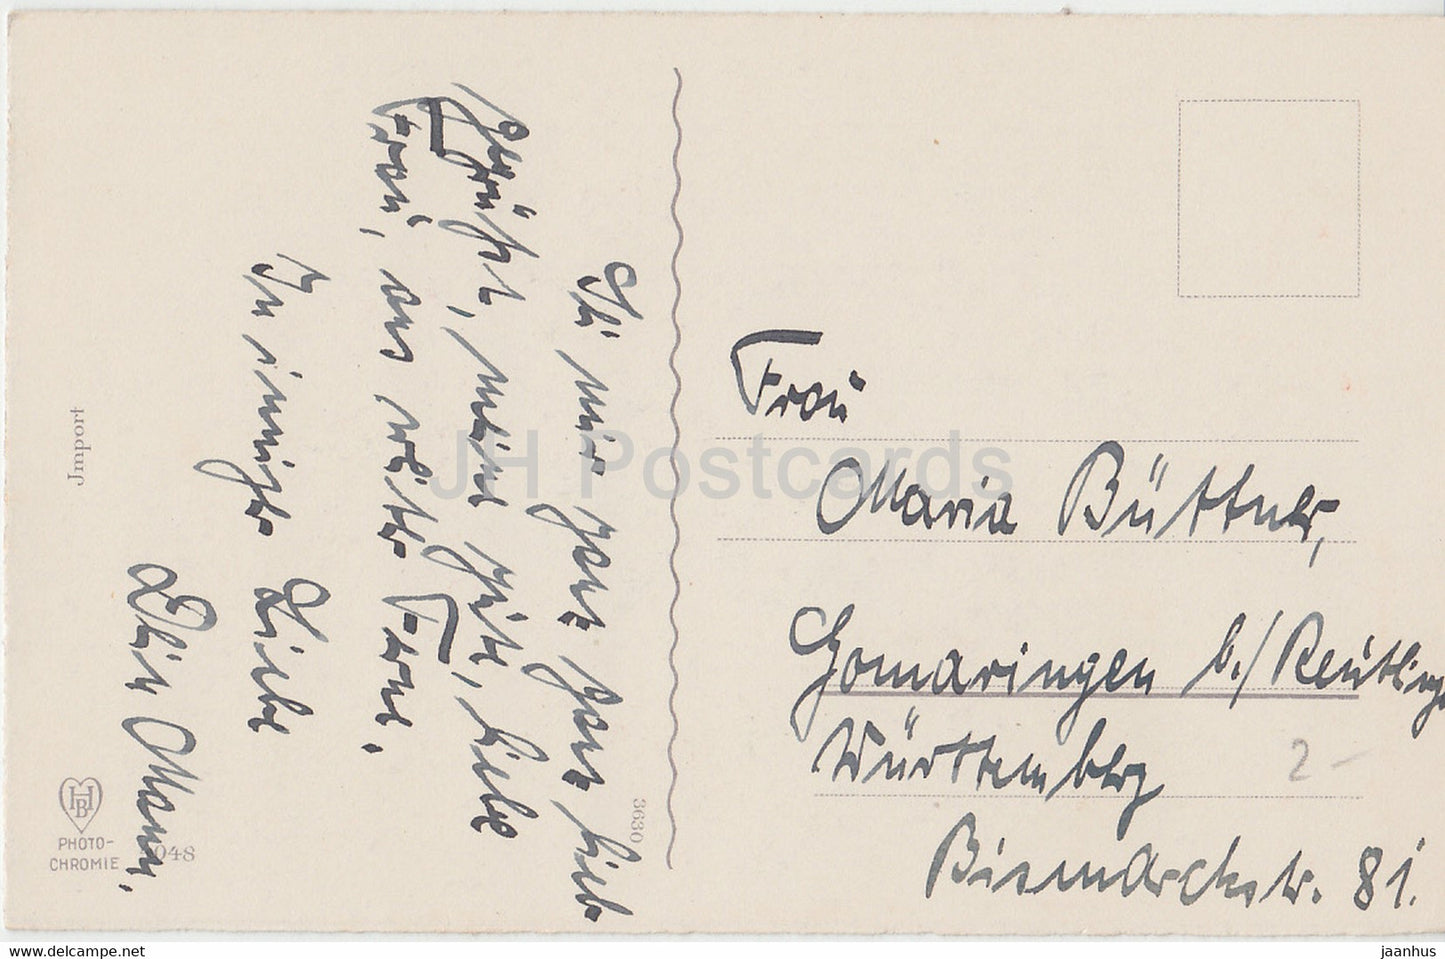 Sei mir ganz ganz lieb
gegrüßt, meine gute, liebe
Frau, aus weiter Ferne.
In inniger Liebe
Dein Mann.
Frau
Maria Büttner,
Gomaringen b./Reutlinge
Württemberg
Bismarckstr. 81.
2-
3630
Jmport
HB
PHOTO-
CHROMIE
048
JH Postcards
www.delcampe.net
jaanhus